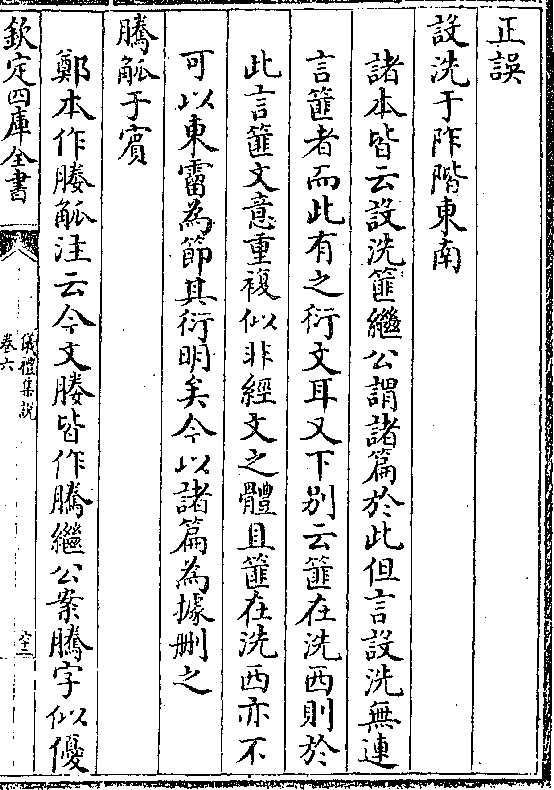 正誤
設洗于阼階東南
諸本皆云設洗篚繼公謂諸篇於此但言設洗無連
言篚者而此有之衍文耳又下别云篚在洗西則於
此言篚文意重複似非經文之體且篚在洗西亦不
可以東霤為節其衍明矣今以諸篇為據刪之
騰觚于賓
鄭本作媵觚注云今文媵皆作騰繼公案騰字似優
欽定四庫全書
儀禮集說
卷六
六十三